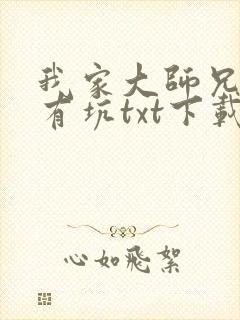 我家大师兄
有坑txt下载
心如飛絮